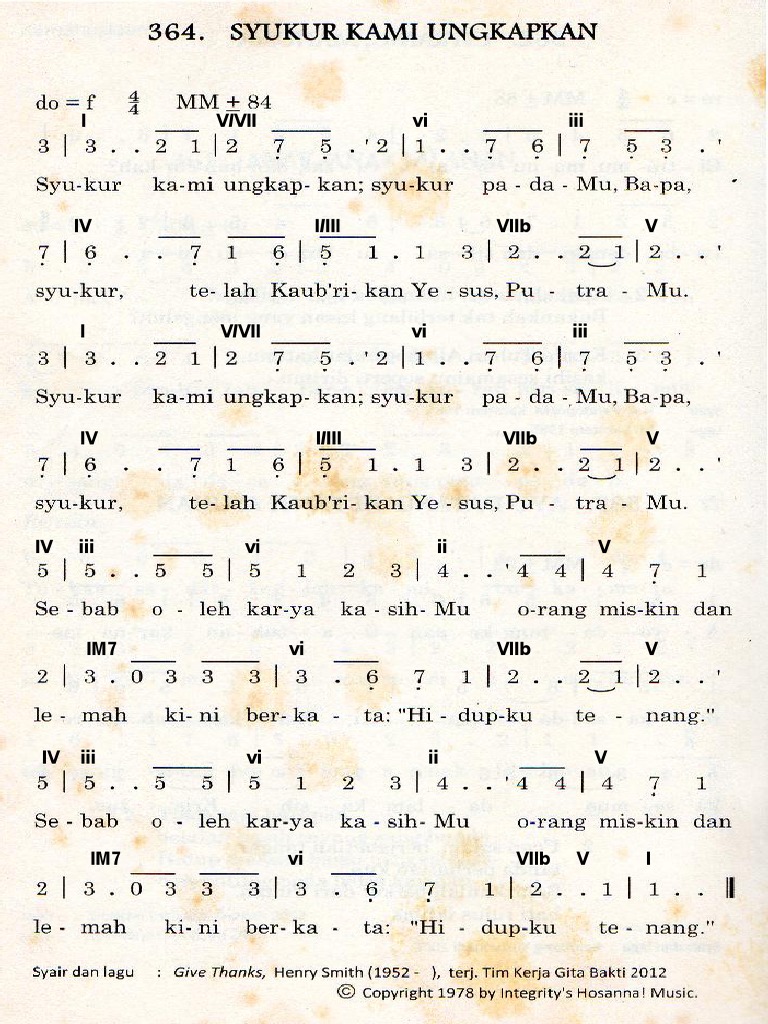 364. SYUKUR KAMI UNGKAPKAN
do = f 4/4 MM ± 84
I V/VII vi iii
3 | 3 . . 2 1 | 2 7 5 . ' 2 | 1 . . 7 6 | 7 5 3 . '
Syu-kur ka-mi ungkap- kan; syu-kur pa - da - Mu, Ba-pa,
IV I/III VIIb V
7 | 6 . . 7 1 6 | 5 1 . 1 3 | 2 . . 2 1 | 2 . . '
syu-kur, te- lah Kaub'ri- kan Ye - sus, Pu - tra - Mu.
I V/VII vi iii
3 | 3 . . 2 1 | 2 7 5 . 2 | 1 . . 7 6 | 7 5 3 . '
Syu-kur ka-mi ungkap- kan; syu-kur pa - da - Mu, Ba-pa,
IV I/III VIIb V
7 | 6 . . 7 1 6 | 5 1 . 1 3 | 2 . . 2 1 | 2 . . '
syu-kur, te- lah Kaub'ri- kan Ye - sus, Pu - tra - Mu.
IV iii vi ii V
5 | 5 . . 5 5 | 5 1 2 3 | 4 . . ' 4 4 | 4 7 1
Se - bab o - leh kar-ya ka - sih- Mu o-rang mis-kin dan
IM7 vi VIIb V
2 | 3 0 3 3 3 | 3 . 6 7 1 | 2 . 2 1 | 2 . . '
le - mah ki- ni ber- ka - ta: "Hi - dup-ku te - nang."
IV iii vi ii V
5 | 5 . . 5 5 | 5 1 2 3 | 4 . . ' 4 4 | 4 7 1
Se - bab o - leh kar-ya ka - sih- Mu o-rang mis-kin dan
IM7 vi VIIb V I
2 | 3 . 0 3 3 3 | 3 . 6 7 1 | 2 . 1 | 1 . . ||
le - mah ki- ni ber- ka - ta: "Hi - dup-ku te - nang."
Syair dan lagu : Give Thanks, Henry Smith (1952 - ), terj. Tim Kerja Gita Bakti 2012
© Copyright 1978 by Integrity's Hosanna! Music.